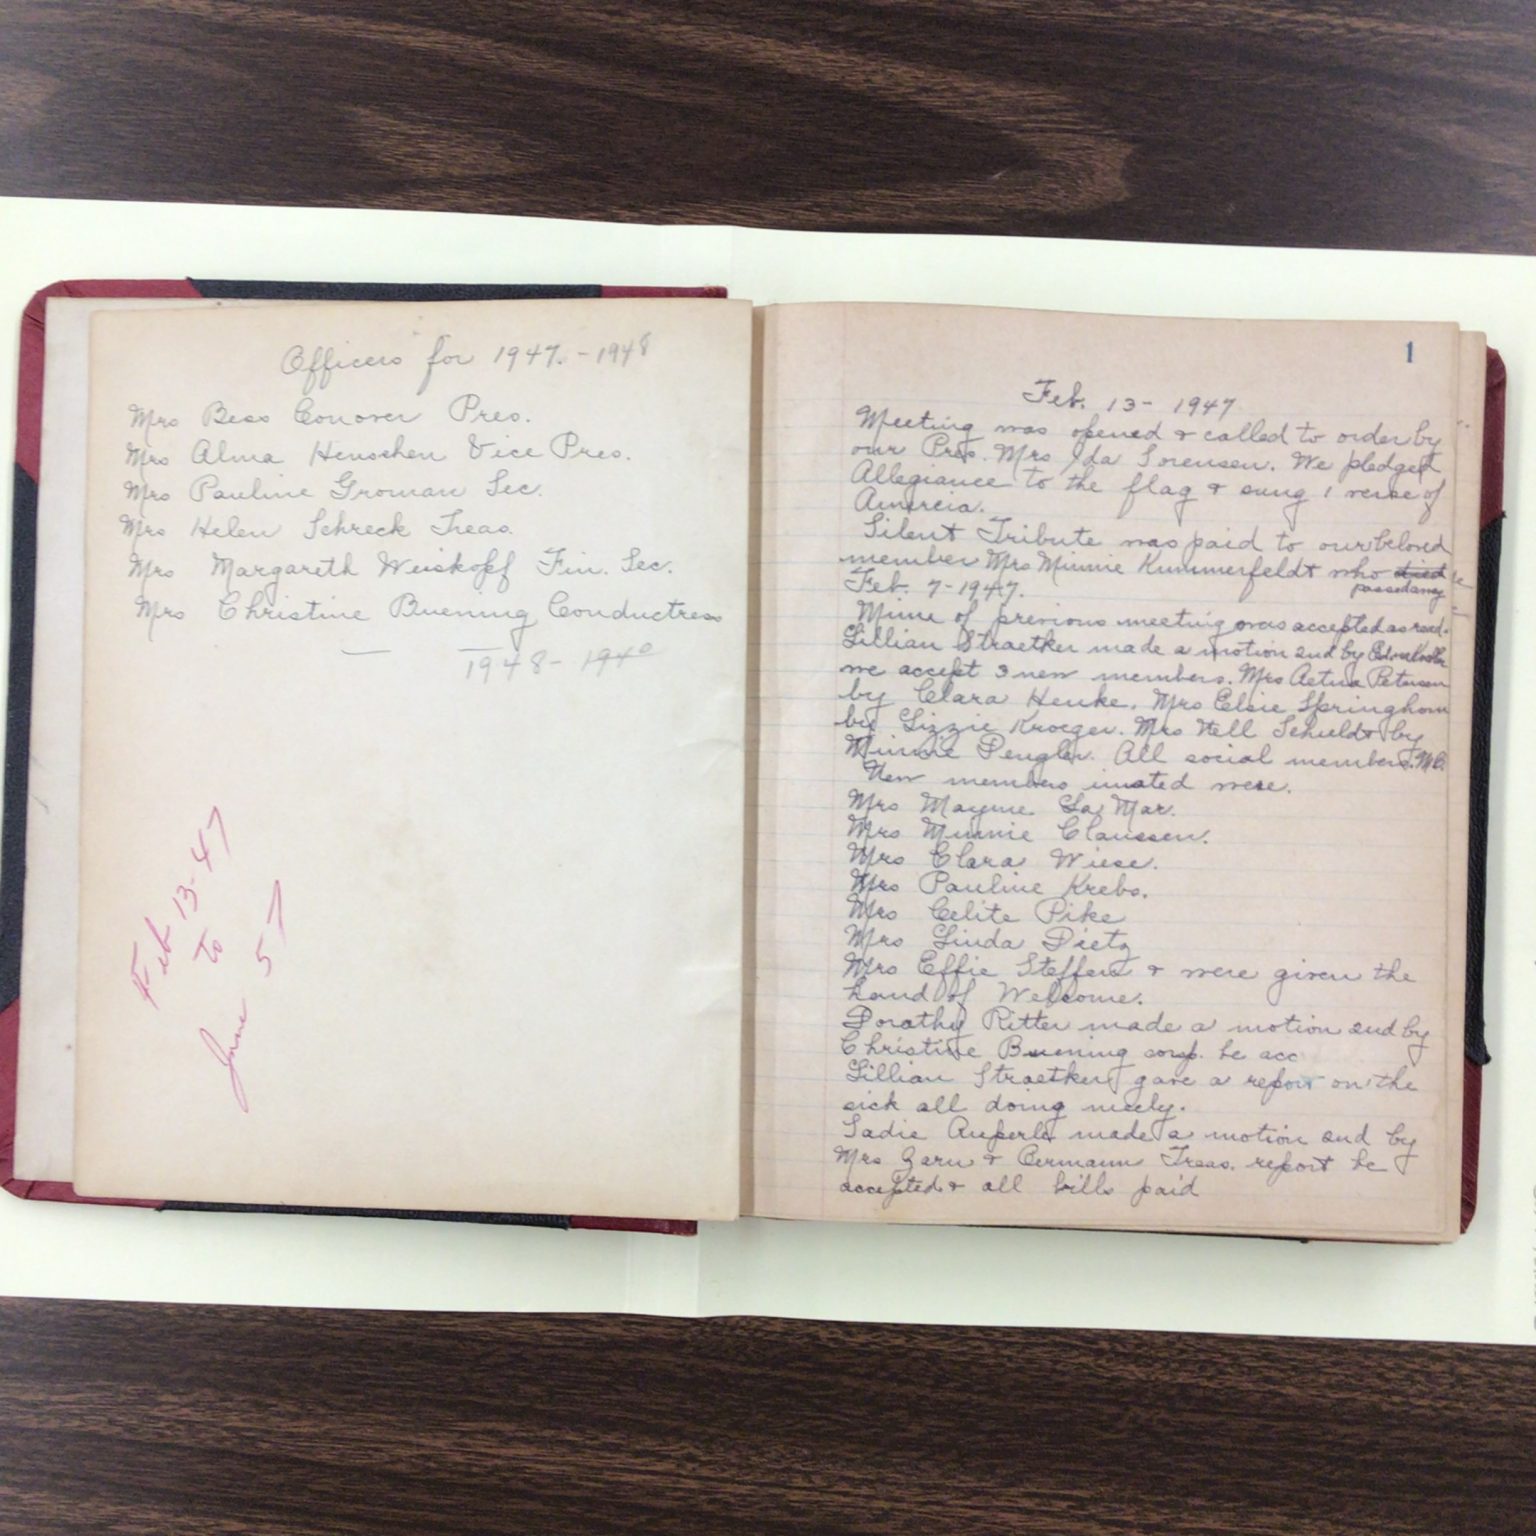 Officers for 1947.-1948
Mrs Bess Conover Pres.
Mrs Alma Henschen Vice Pres.
Mrs Pauline Groman Sec.
Mrs Helen Schreck Treas.
Mrs Margareth Weiskopf Fin. Sec.
Mrs Christine Buening Conductress
1948-194
Feb 13-47
To
June 57
1
Feb. 13- 1947
Meeting was opened & called to order by
our Pres. Mrs Ida Sorensen. We pledged
Allegiance to the flag & sung 1 verse of
Amercia.
Silent Tribute was paid to our beloved
member Mrs Minnie Kummerfeldt who died
passed away
Feb. 7-1947.
Minue of previous meeting was accepted as read.
Lillian Straetker made a motion 2nd by
we accept 3 new members. Mrs Petersen
by Clara Henke. Mrs Elsie Springhorn
by Lizzie Kroeger. Mrs Nell Schuldt by
Minnie Pengler. All social members. M.C.
New members were.
Mrs Mayme La Mar.
Mrs Minnie Claussen.
Mrs Clara Wiese.
Mrs Pauline Krebs.
Mrs Celite Pike
Mrs Linda Dietz
Mrs Effie Steffens & were given the
hand of Welcome.
Dorathy Ritter made a motion 2nd by
Christine Buening corsp. be acc
Lillian Straetker gave a report on the
sick all doing nicely.
Sadie Auperle made a motion 2nd by
Mrs & Treas. report be
accepted & all bills paid